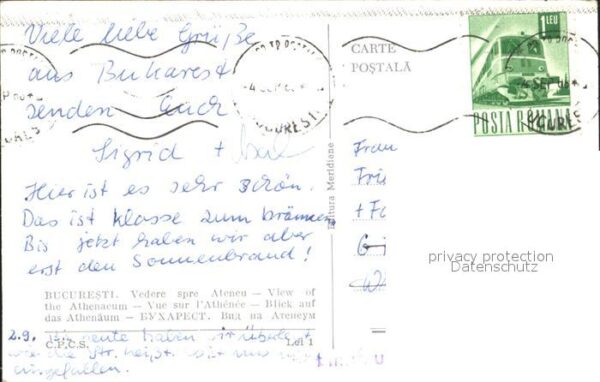 Viele liebe Grüße
aus Bukarest
senden Euch
Sigrid +
Hier ist es sehr schön.
Das ist klasse zum bräunen
Bis jetzt haben wir aber
erst den Sonnenbrand!
BUCUREȘTI. Vedere spre Ateneu — View of
the Athenaeum — Vue sur l'Athénée — Blick auf
das Athenäum — БУХАРЕСТ. Вид на Атенеум
C.P.C.S. Lei 1
2.9. heute haben wir überlegt
wie die Str. heißt.
eingefallen.
Editura Meridiane
CARTE
POȘTALĂ
1 LEU
POSTA ROMANA
BUCUREȘTI
4 SEP
Frau
+
privacy protection
Datenschutz